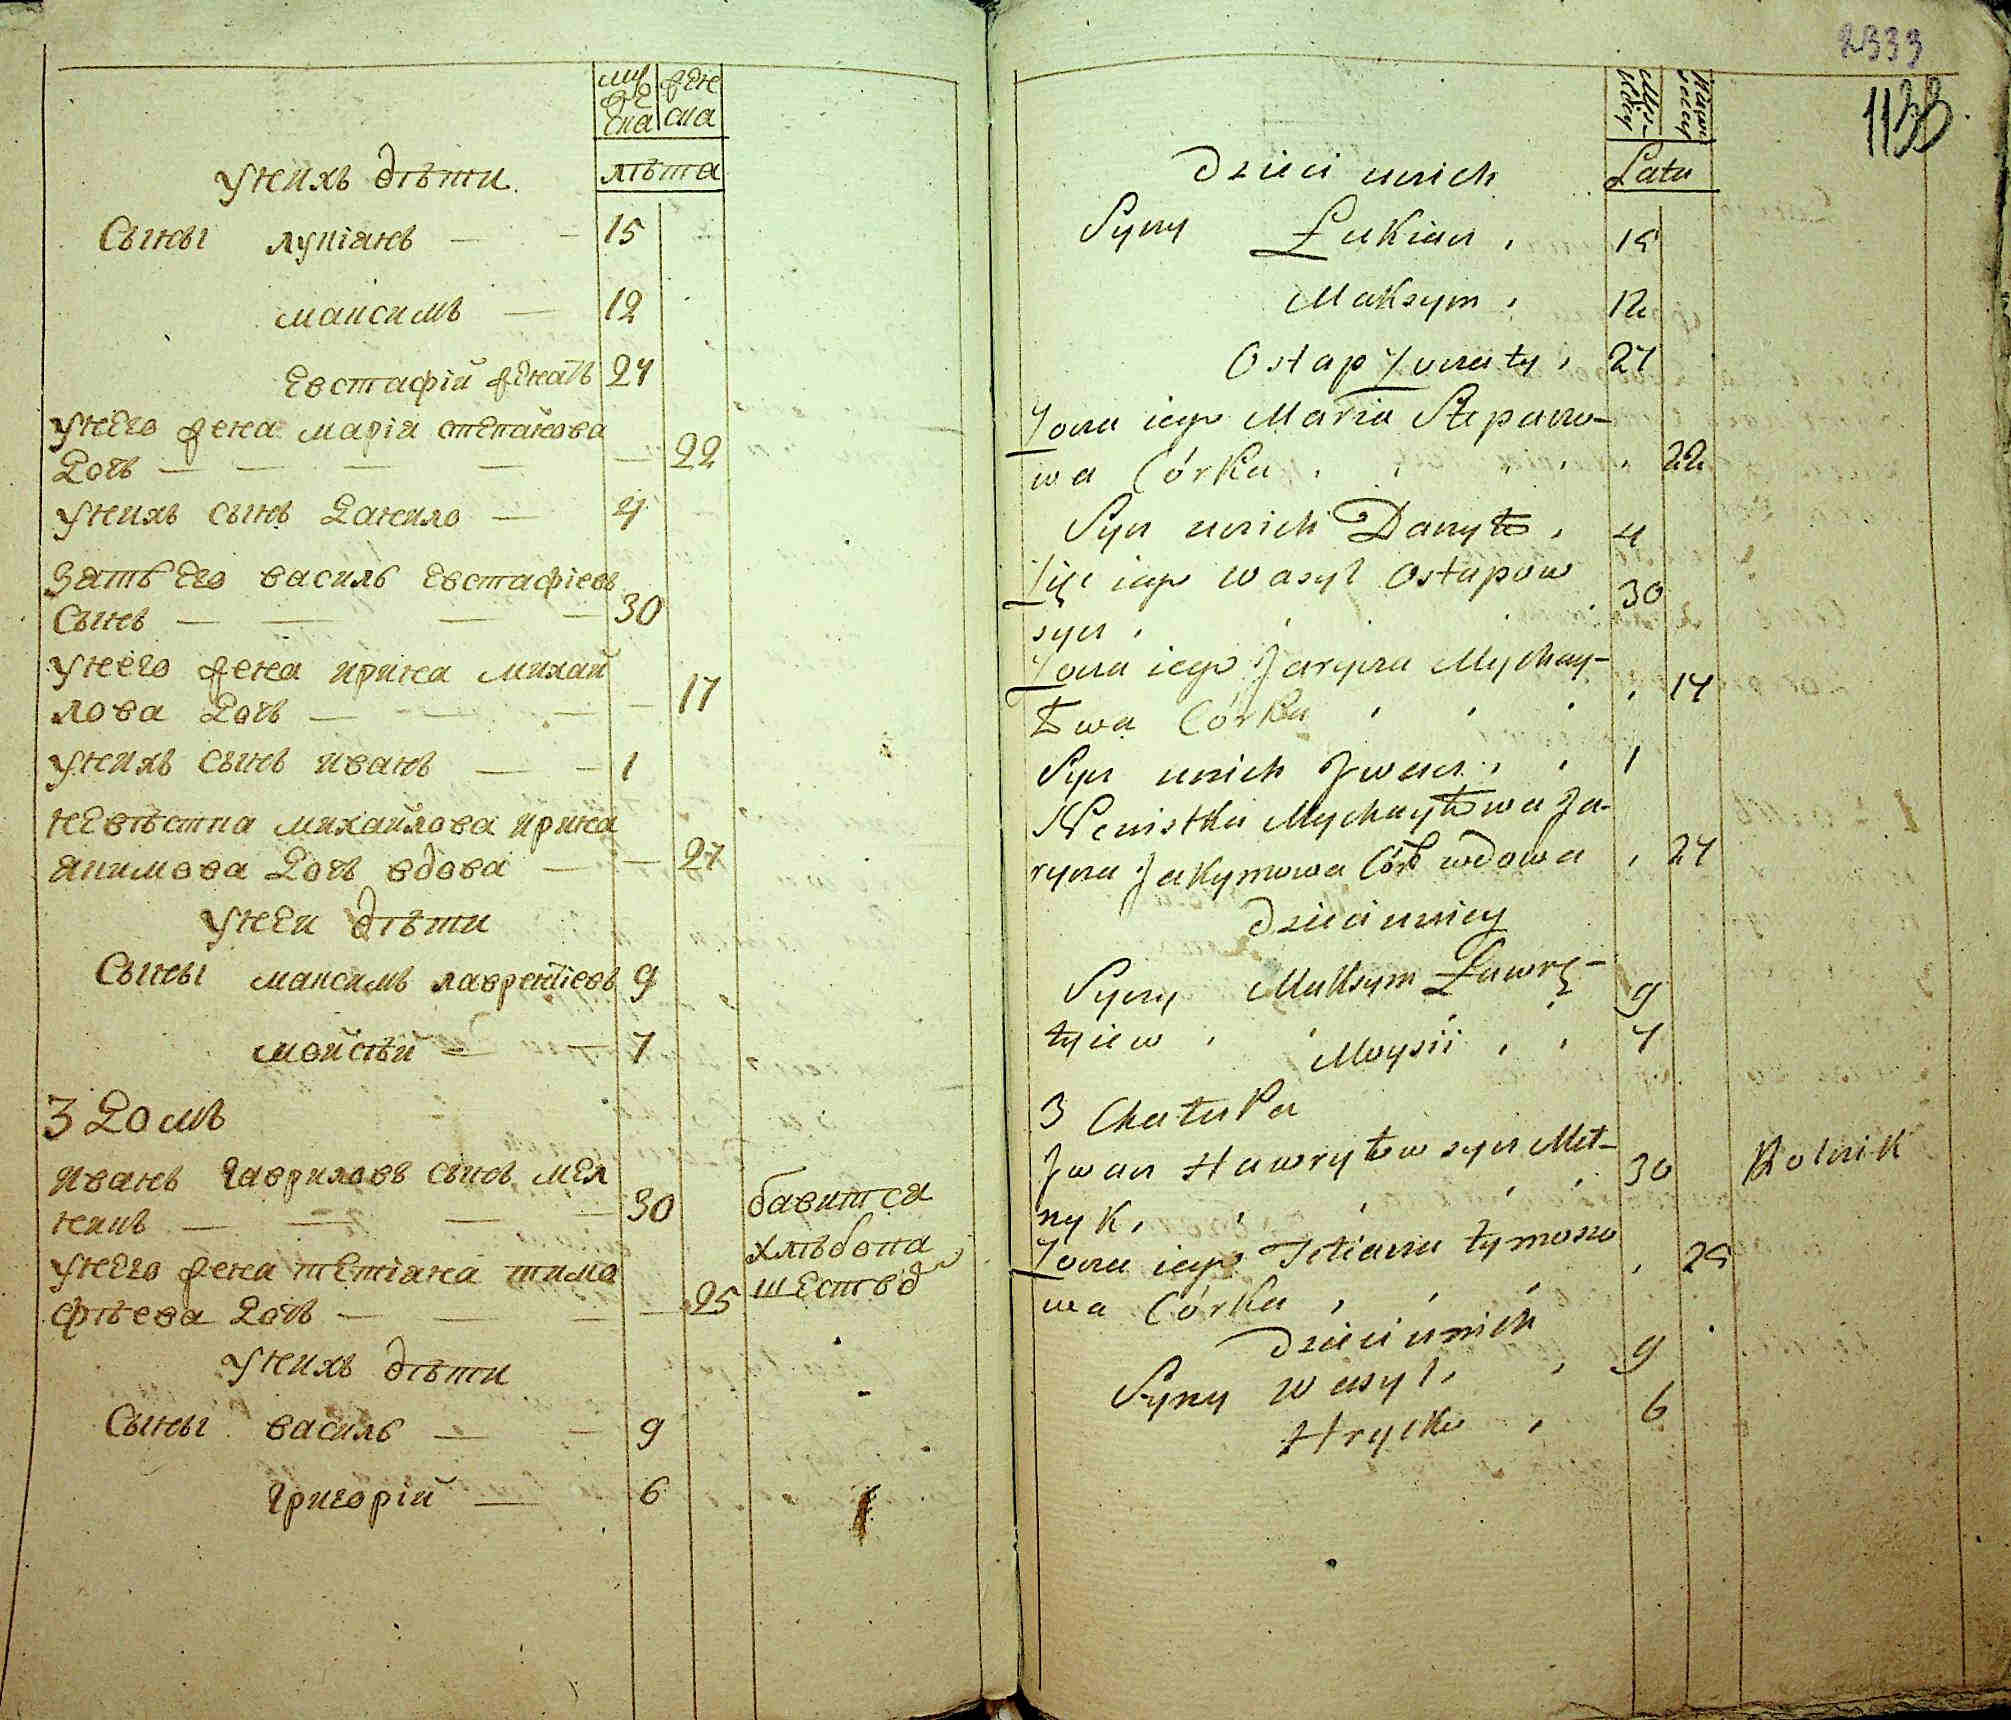 муже
ска
жен
ска
лѣта
У нихъ дѣти
Сыны лукіанъ — — 15
максимъ — 12
Евстафій женатъ 24
У него жена марія степанова
дочь — — — — — 22
У нихъ сынъ данило — 4
Зять его василь Евстафіевъ
Сынъ — — — — 30
У него жена ирина михай
лова дочь — — — — 17
У нихъ сынъ иванъ — — 1
невѣстка михайлова ирина
якимова дочь вдова — — 27
У неи дѣти
Сыны максимъ лаврентіевъ 9
мойсѣй — — 7
3 домъ
иванъ гавриловъ сынъ мел
никъ — — — — 30
бавится
хлѣбопа
шествод
У него жена тетіана тимо
фѣева дочь — — — 25
У нихъ дѣти
Сыны василь — — 9
григорій — 6
2333
1133
Lata
Dzieci unich
Syny Łukian 15
Maksym 12
Ostap Żonaty 24
Żona iego Maria Stepano-
wa Córka 22
Syn unich Danyło 4
Zięć iego Wasyl Ostapow
syn 30
Żona iego Jaryna Mychay-
łowa Córka 17
Syn unich Jwan 1
Newistka Mychayłowa Ja-
ryna Jakymowa Córk wdowa 27
Dzieci uniey
Syny Maksym Ławrę-
tyiew 9
Moysii 7
3 Chałupa
Jwan Hawryłow syn Meł-
nyk 30 Rolnik
Żona iego Tetiana tymoszo
wa Córka 25
Dzieci unich
Syny Wasyl 9
Hryćko 6